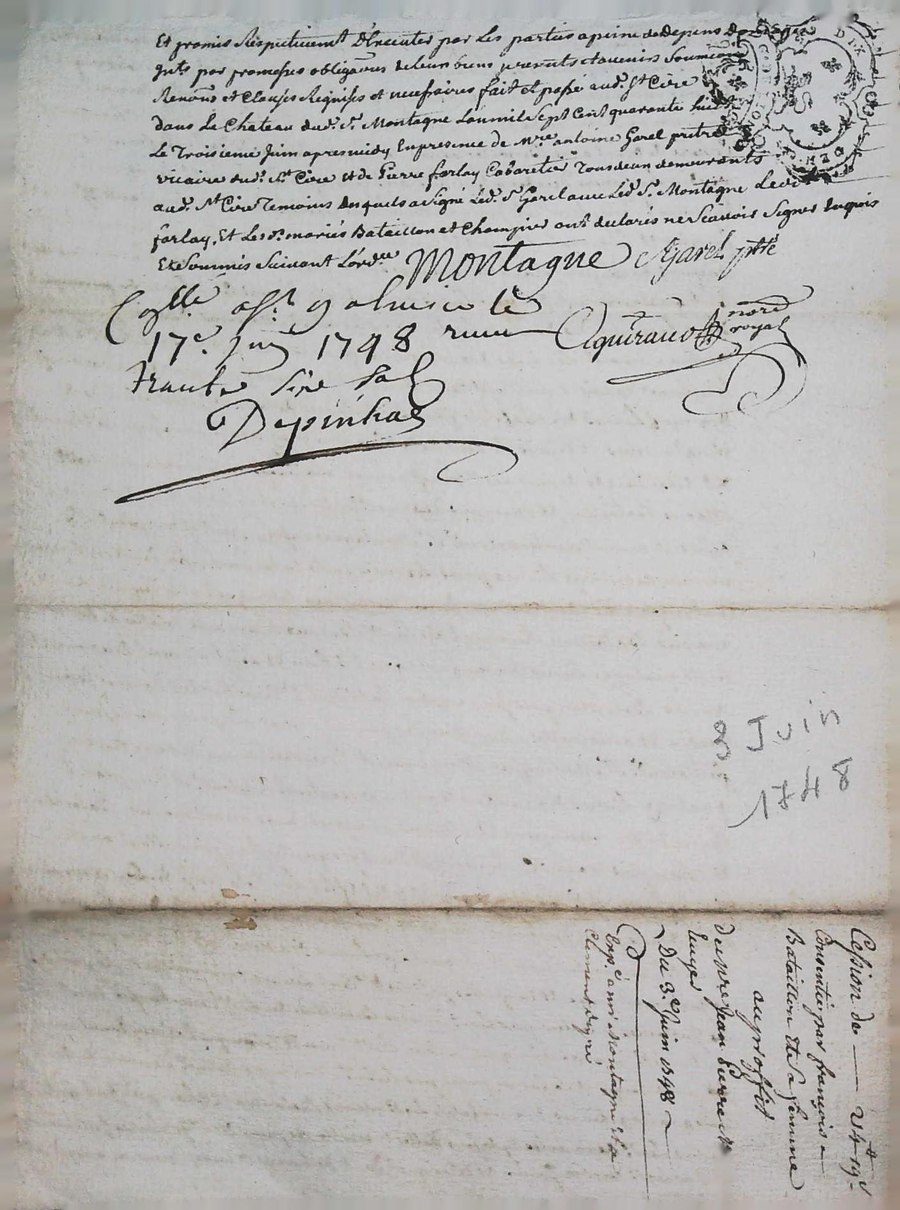 Et promis Respectivemt d'Executer par les parties a peine de depens
Ints par promesses obligaons de leurs biens presents et avenir Soumi
Renons et Clauses Requises et necessaires fait et passé aud. St Cire
dans Le Chateau dud. Sr Montagne Lan mil Sept Cent quarante huit
Le Troisieme Juin apres midy En presence de Mre antoine Garel pretre
vicaire aud. St Cire et de Pierre farlay Cabaretier Tous deux demeurants
aud. St Cire Temoins desquels a Signé Led. Sr Garel avec Led. Sr Montagne
farlay, Et Les d. mariés Bataillon et ont declarés ne Scavoir Signer
Et Sommés Suivant L'ordce Montagne Garel ptre
le
17e Juin 1748
Trante Six Sols
Depinhac
royal
3 Juin
1748
Cession de
Consentie par françois
Bataillon et Sa femme
au proffit
de Jean Pierre
Du 3e Juin 1748
Exp. a mr Montagne